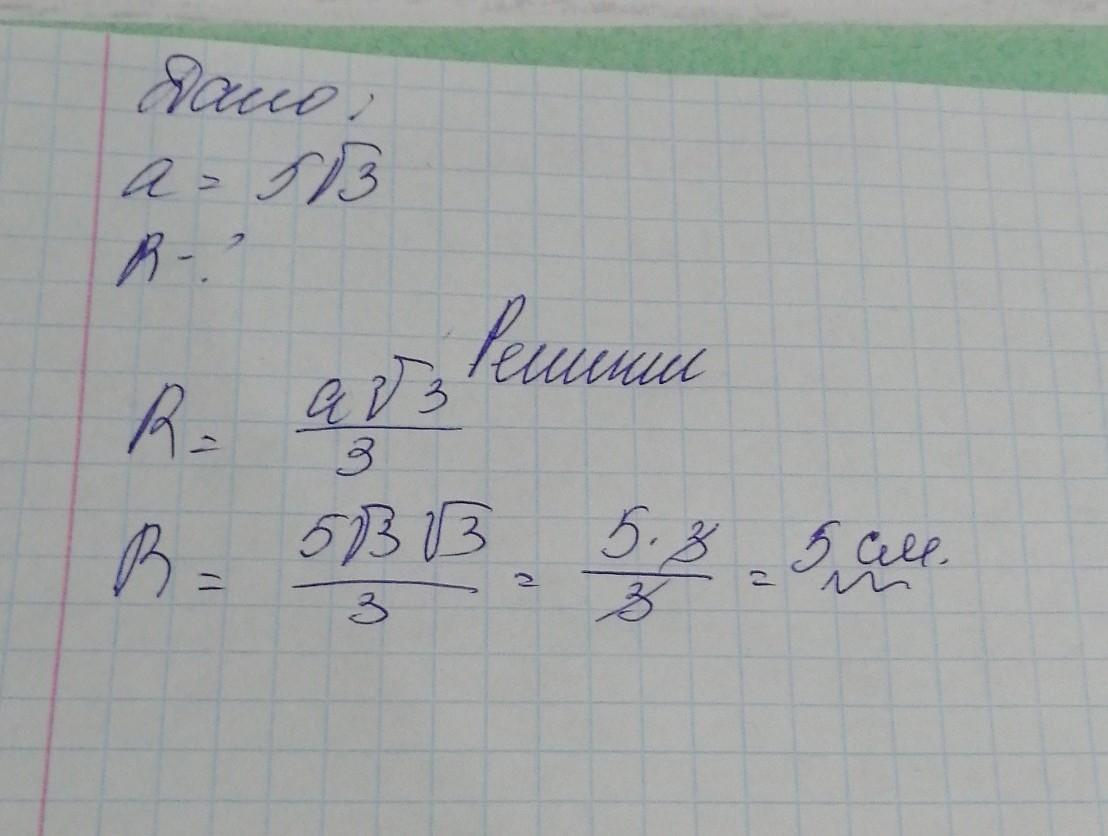 Дано:
a = 5√3
R - ?
Решение
R = a√3/3
R = 5√3 √3/3 = 5·3/3 = 5 см.